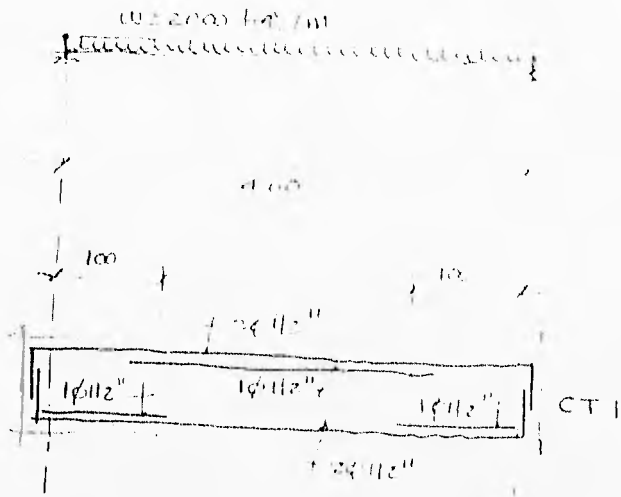 W = 2000 kg/m
4.00
1.00
2ϕ1/2"
1ϕ1/2"
1ϕ1/2"
1ϕ1/2"
CT 1
2ϕ1/2"